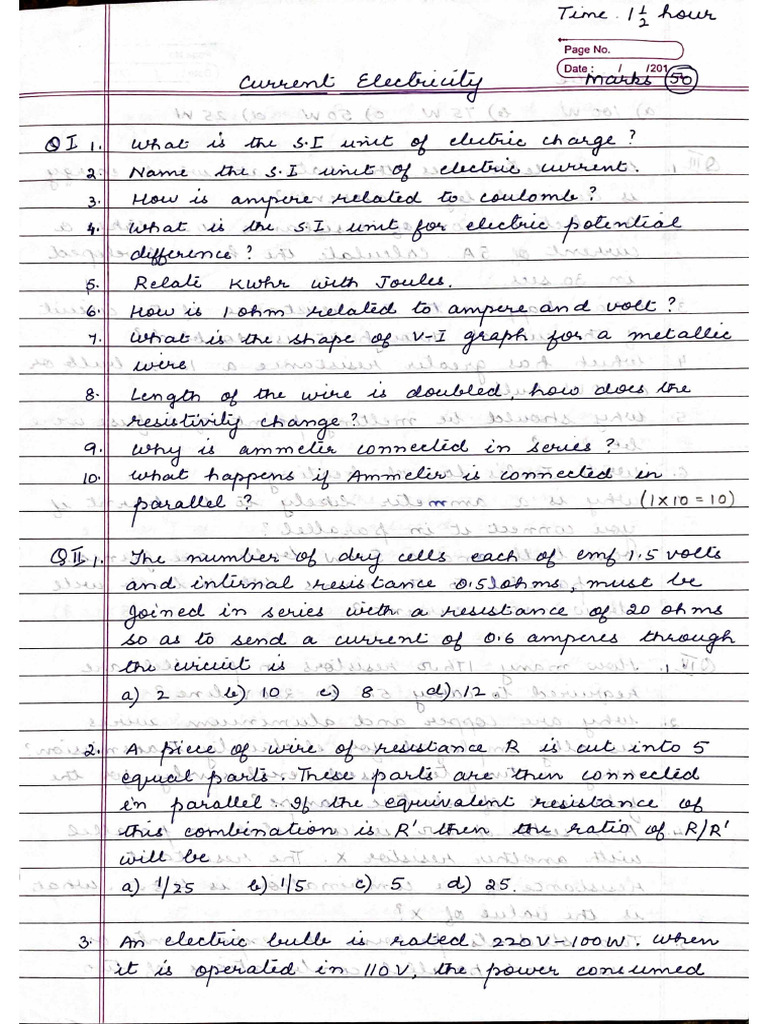 Time. 1 1/2 hour
Page No.
Date : / /201
Marks 50
Current Electricity
QI 1. What is the S.I unit of electric charge?
2. Name the S.I unit of electric current.
3. How is ampere related to coulomb?
4. What is the S.I unit for electric potential
difference?
5. Relate Kwhr with Joules.
6. How is 1 ohm related to ampere and volt?
7. What is the shape of V-I graph for a metallic
wire
8. Length of the wire is doubled, how does the
resistivity change?
9. Why is ammeter connected in series?
10. What happens if Ammeter is connected in
parallel? (1x10=10)
QII 1. The number of dry cells each of emf 1.5 volts
and internal resistance 0.51ohms, must be
joined in series with a resistance of 20 ohms
so as to send a current of 0.6 amperes through
the circuit is
a) 2 b) 10 c) 8 d) 12
2. A piece of wire of resistance R is cut into 5
equal parts. These parts are then connected
in parallel. If the equivalent resistance of
this combination is R' then the ratio of R/R'
will be
a) 1/25 b) 1/5 c) 5 d) 25.
3. An electric bulb is rated 220V-100W. When
it is operated in 110V, the power consumed